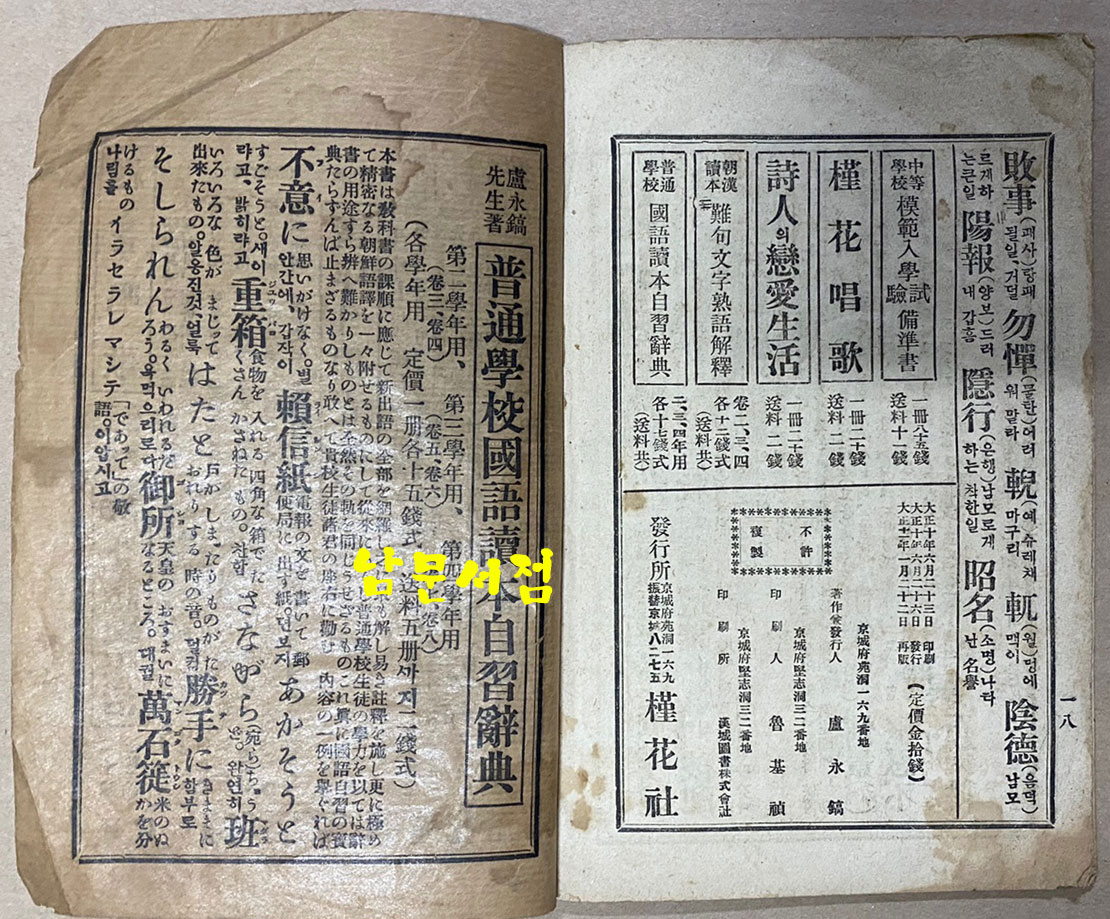 敗事(패사)랑패될일、거덜 勿憚(물탄)어려워말라 輗(예)슈레채마구리 軏(월)멍에맥이 陰德(음덕)남모
르게하는큰일 陽報(양보)드러내갑흠 隱行(은행)남모르게하는착한일 昭名(소명)나타난名譽
一八
中等學校 模範入學試驗備準書
一冊八十五錢
送料十一錢
槿花唱歌
一冊二十錢
送料二錢
詩人의戀愛生活
一冊二十錢
送料二錢
朝漢讀本 難句文字熟語解釋
卷二、三、四
各十二錢式
(送料共)
普通學校 國語讀本自習辭典
二、三、四年用
各十七錢式
(送料共)
大正十年六月二十三日 印刷
大正十年六月二十六日 發行
大正十一年一月二十二日 再版
(定價金拾錢)
不許
複製
京城府苑洞一六九番地
著作兼發行人 盧永鎬
京城府堅志洞三二番地
印刷人 魯基禎
京城府堅志洞三二番地
印刷所 漢城圖書株式會社
發行所 京城府苑洞一六九
振替京城八二七五
槿花社
盧永鎬先生著
普通學校國語讀本自習辭典
第二學年用、第三學年用、第四學年用
(卷三、卷四) (卷五、卷六) 卷八)
(各學年用 定價一冊各十五錢式 送料五册싸지二錢式)
本書は敎科書の課順に應じて新出語の全部を網羅し 解し易き註釋を施し更に極め
て精密なる朝鮮語譯を一々附せるものにして從來に 普通學校生徒の學力を以ては辭
書の用途すら辨へ難かりしものとは全然その軌を同じうせざるものこれ眞に國語自習の寶
典たらずんば止まざるものなり敢へて貴校生徒諸君の座右に勸む 內容の一例を擧ぐれば
不意に 思いがけなく。별안간에、갑작이 賴信紙 電報の文を書いて郵便局に出す紙。뎐보지 あかそうと
すごそうと。새이랴고、밝히랴고 重箱 食物を入れる四角な箱でたくさんかさねたもの。찬합 さながら (宛ら)ちょう 완연히 班
いろいろな色がまじって出來たもの。알웅진것、얼룩 はたと 石がしまったりものがたおれりする時の音。덜걱 勝手に きまゝに 함부로
そしられん わるくいわれるだろう。욕먹으리로다 御所 天皇のおすまいになるところ。대궐 萬石簁 米のぬかを分
けるもの 나림틀 イラセラレマシテ 「であって」の敬語。이압시고
남문서점